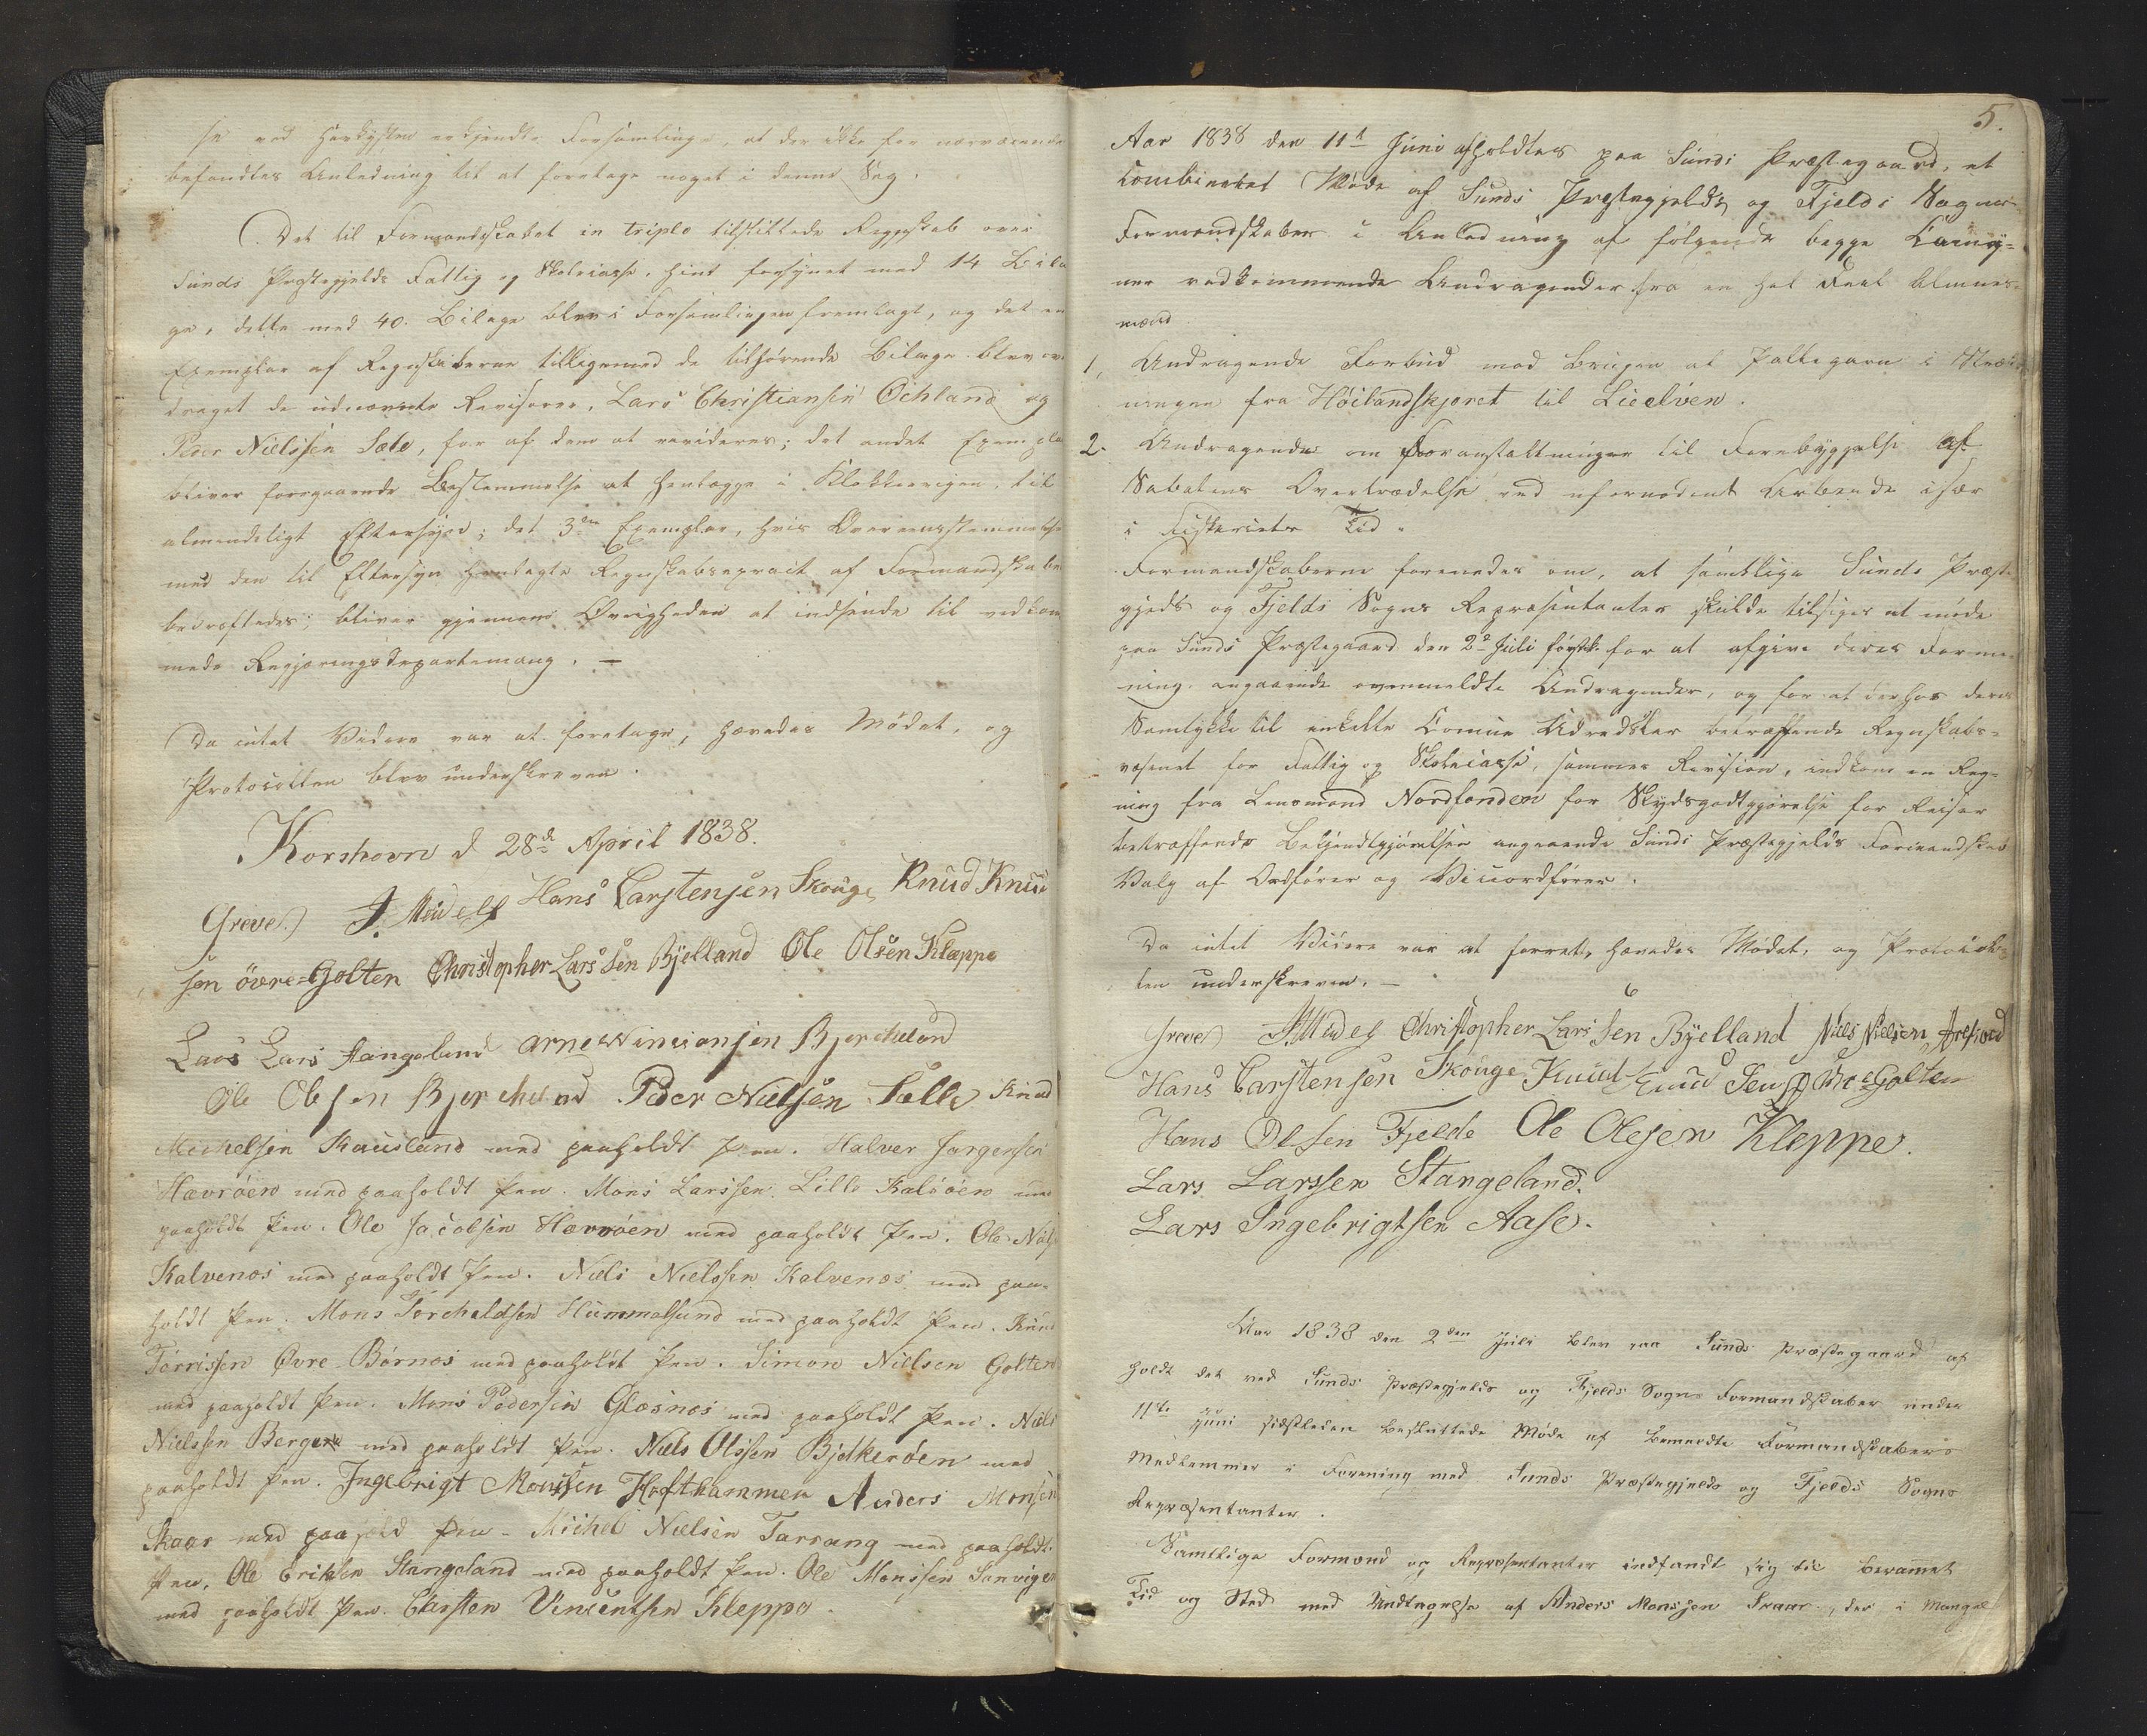 se ved Havkysten erkjendte Forsamlinge, at der ikke for nærværende
befandtes Anledning til at foretage noget i denne Sag.
Det til Formandskabet in triplo tilstillede Regnskab over
Sunds Præstegjelds Fattig og Skolecasse, hint forsynet med 14 Bila
ge, dette med 40. Bilage blev i Forsamlingen fremlagt, og det ene
Exemplar af Regnskaberne tilligemed de tilhørende Bilage blev over
draget de udnævnte Revisorer, Lars Christiansen Øchland og
Peder Nielssen Sæle, for af dem at revideres; det andet Exempla
bliver foregaaende Bestemmelse at henlægge i Klokkervigen, til
almindeligt Eftersyn; det 3die Exemplar, hvis Overensstemmelse
med den til Eftersyn henlagte Regnskabsexpract af Formandskabe
bekræftedes, bliver gjennem Øvrigheden at indsende til vedkom
mede Regjeringsdepartemang. —
Da intet Videre var at foretage, hævedes Mødet, og
Protocollen blev underskreven.
Korshavn d 28d April 1838.
Greve J. Hans Carstensen Skouge Knud Knud
sen övre=Golten Christopher Lars Sen Bjelland Ole Olsen Klæppe
Lars Lars Stangeland Arne Bjerckeland
Ole Olsen Bjerckeland Peder Nielsen Sælle Knud
Michelsen Kausland med paaholdt Pen. Halver Jørgensen
Hævrøen med paaholdt Pen. Mons Larssen Lille Kalsøen med
paaholdt Pen. Ole Jacobsen Hævrøen med paaholdt Pen. Ole Niels
Kalvenæs med paaholdt Pen. Niels Nielssen Kalvenæs med paa-
holdt Pen. Mons Torchaldsen Hummelsund med paaholdt Pen. Knud
Torrissen Øvre Børnæs med paaholdt Pen. Simon Nielsen Golten
med paaholdt Pen. Mons Pedersen Glæsnæs med paaholdt Pen. Niels
Nielssen Berge med paaholdt Pen. Niels Olssen Bjelkerøen med
paaholdt Pen. Ingebrigt Monssen Hofthammen Anders Monsen
Skaar med paahold Pen - Michel Nielsen Tarrang med paaholdt
Pen. Ole Eriksen Stangeland med paaholdt Pen. Ole Monssen Sanvigen
med paaholdt Pen. Carsten Vincentsen Kleppe
5.
Aar 1838 den 11t Juni afholdtes paa Sunds Præstegaard, et
combineret Møde af Sunds Præstegjelds og Fjelds Sogns
Formandskaber i Anledning af følgende begge Comu=
ner vedkommende Andragender fra en hel Deel Almues-
mænd
1, Andragende Forbud mod Brugen af garn i Stræk
ningen fra Høilandskjæret til Lieelven.
2. Andragende om Foranstaltninger til Forebyggelse af
Sabatens Overtrædelse ved ufornødent Arbeide især
i Fiskeriets Tid.
Formandskaberne forenedes om, at samtlige Sunds Præste
gjeds og Fjelds Sogns Repræsentanter skulde tilsiges at møde
paa Sunds Præstegaard den 2d Juli førstk: for at afgive deres Forme
ning angaaende ovenmeldte Andragender, og for at derhos deres
Samtykke til enkelte Comune Udredsler betræffende Regnskabs=
væsenet for Fattig og Skolecasse, sammes Revision, indkom en Reg=
ning fra Lensmand Nordfonden for Skydsgodtgjørelse for Reiser
betræffende Bekjendtgjørelsen angaaende Sunds Præstegjelds Formandskabs
Valg af Ordfører og Viceordfører.
Da intet Videre var at forret, hævedes Mødet, og Protocol=
len underskreven. —
Greve Christopher Lars Sen Byelland Niels Nielsen
Hans Carstensen Skouge Knud Knud Sen Øvre Golten
Hans Olsen Fjelde Ole Olesen Kleppe.
Lars Larssen Stangeland.
Lars Ingebrigtsen Aase.
Aar 1838 den 2den Juli blev paa Sunds Præstegaard af
holdt det ved Sunds Præstegjelds og Fjelds Sogns Formandskaber under
11te Juni sidstleden besluttede Møde af bemeldte Formandskabers
Medlemmer i Forening med Sunds Præstegjelds og Fjelds Sogns
Repræsentanter.
Samtlige Formænd og Repræsentanter indfandt sig til berammet
Tid og Sted med Undtagelse af Anders Monssen Skaar, der i Mangel